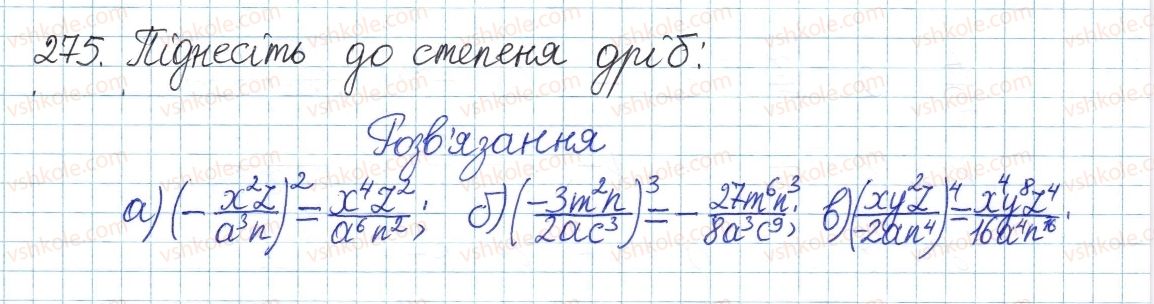 275. Піднесіть до степеня дріб:
Розв'язання
а) (- x²z / a³n)² = x⁴z² / a⁶n²; б) (-3m²n / 2ac³)³ = - 27m⁶n³ / 8a³c⁹; в) (xy²z / -2an⁴)⁴ = x⁴y⁸z⁴ / 16a⁴n¹⁶.